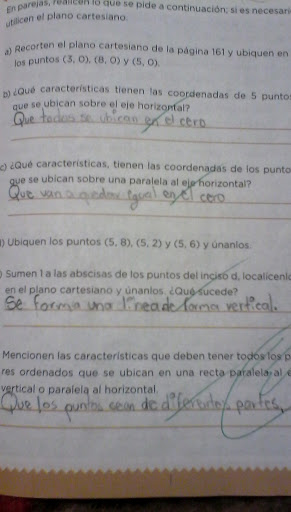 En parejas, realicen lo que se pide a continuación; si es necesari
utilicen el plano cartesiano.
a) Recorten el plano cartesiano de la página 161 y ubiquen en
los puntos (3, 0), (8, 0) y (5, 0).
b) ¿Qué características tienen las coordenadas de 5 punto
que se ubican sobre el eje horizontal?
Que todos se ubican en el cero
c) ¿Qué características, tienen las coordenadas de los punto
que se ubican sobre una paralela al eje horizontal?
Que van a quedar igual en el cero
d) Ubiquen los puntos (5, 8), (5, 2) y (5, 6) y únanlos.
Sumen 1 a las abscisas de los puntos del inciso d, localícenlo
en el plano cartesiano y únanlos. ¿Qué sucede?
Se forma una linea de forma vertical.
Mencionen las características que deben tener todos los p
res ordenados que se ubican en una recta paralela al e
vertical o paralela al horizontal.
Que los puntos sean de diferentes partes,